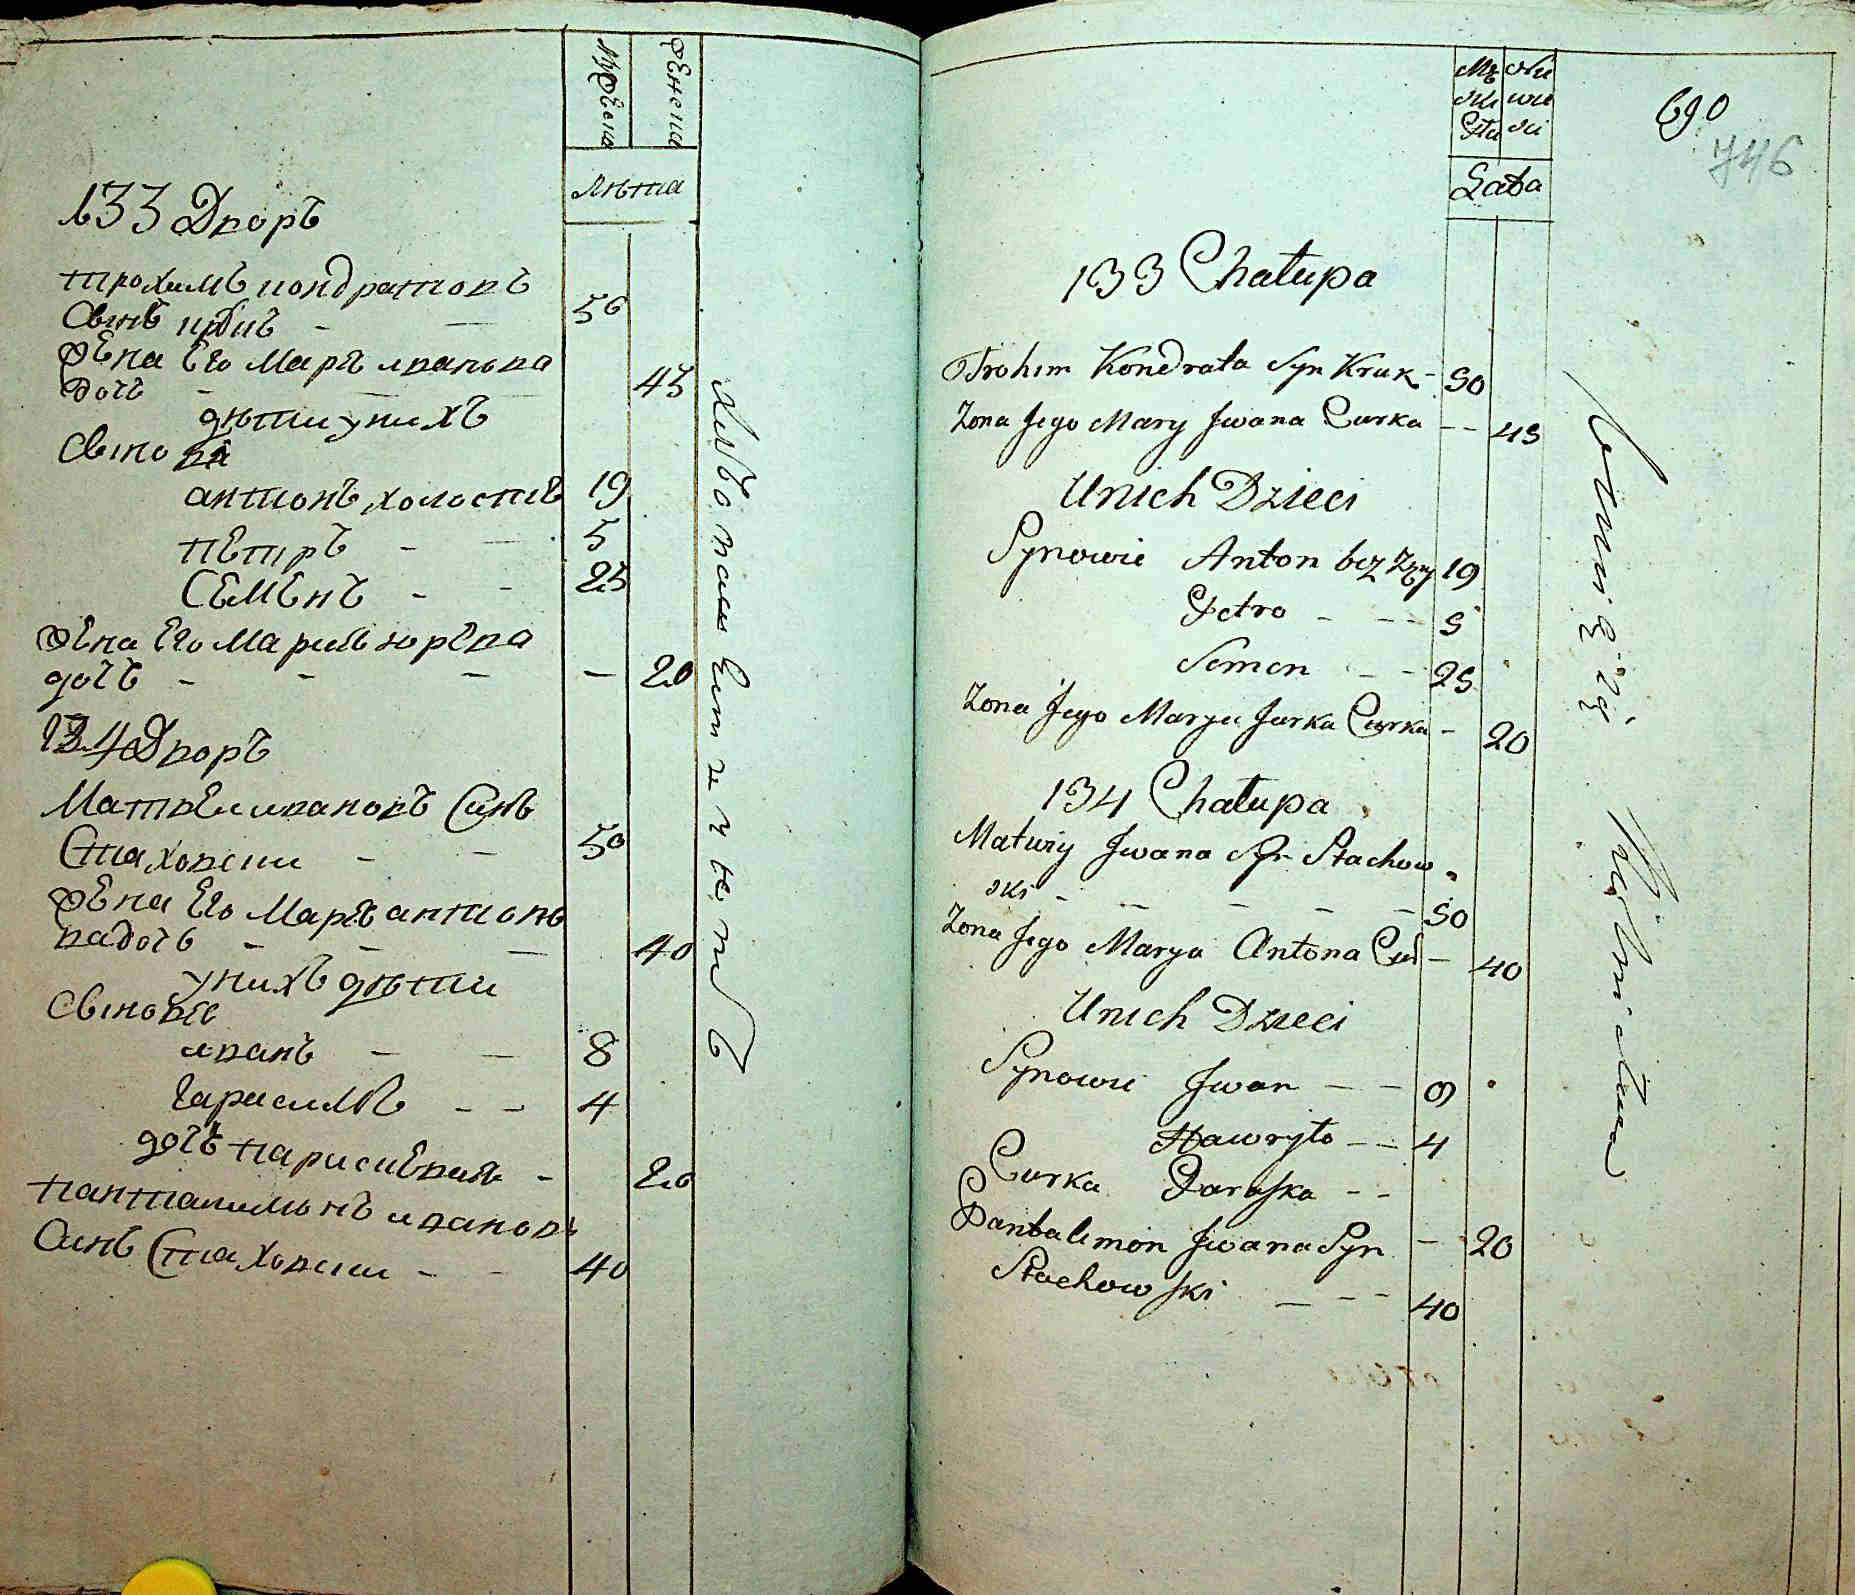 Мужеска
Женска
Лѣта
133 Дворъ
трохимъ кондратовъ
Свинъ крукъ - 50
жена Его Маръ иванова
дочъ - 45
дѣти у нихъ
Свинова
антонъ холостиъ 19
петръ - 5
СЕМЕНЪ - - 25
жена Его Мария юрева
дочъ - - - - 20
134 Дворъ
Матвеи ивановъ Синъ
Стаховски - - 50
жена Его Маръ антоно
вадочъ - - - 40
у нихъ дѣти
Свинове
иванъ - - 8
гарасимъ - - 4
дочъ парискевия - 20
панталимонъ ивановъ
Синъ Стаховски - - 40
Mę skie
Nie wia
Lata
690
746
133 Chałupa
Trohim Kondrata Syn Kruk - 50
Zona Jego Mary Jwana Curka - - 45
Unich Dzieci
Synowie Anton bez Zeny 19
Petro - - - 5
Semen - - 25
Zona Jego Marya Jurka Curka - 20
134 Chałupa
Matwiy Jwana Syn Stachow
ski - - - - - 50
Zona Jego Marya Antona Cur - 40
Unich Dzieci
Synowie Jwan - - 8
Hawryło - - 4
Curka Paraska - -
Pantalimon Jwana Syn - 20
Stachowski - - - 40